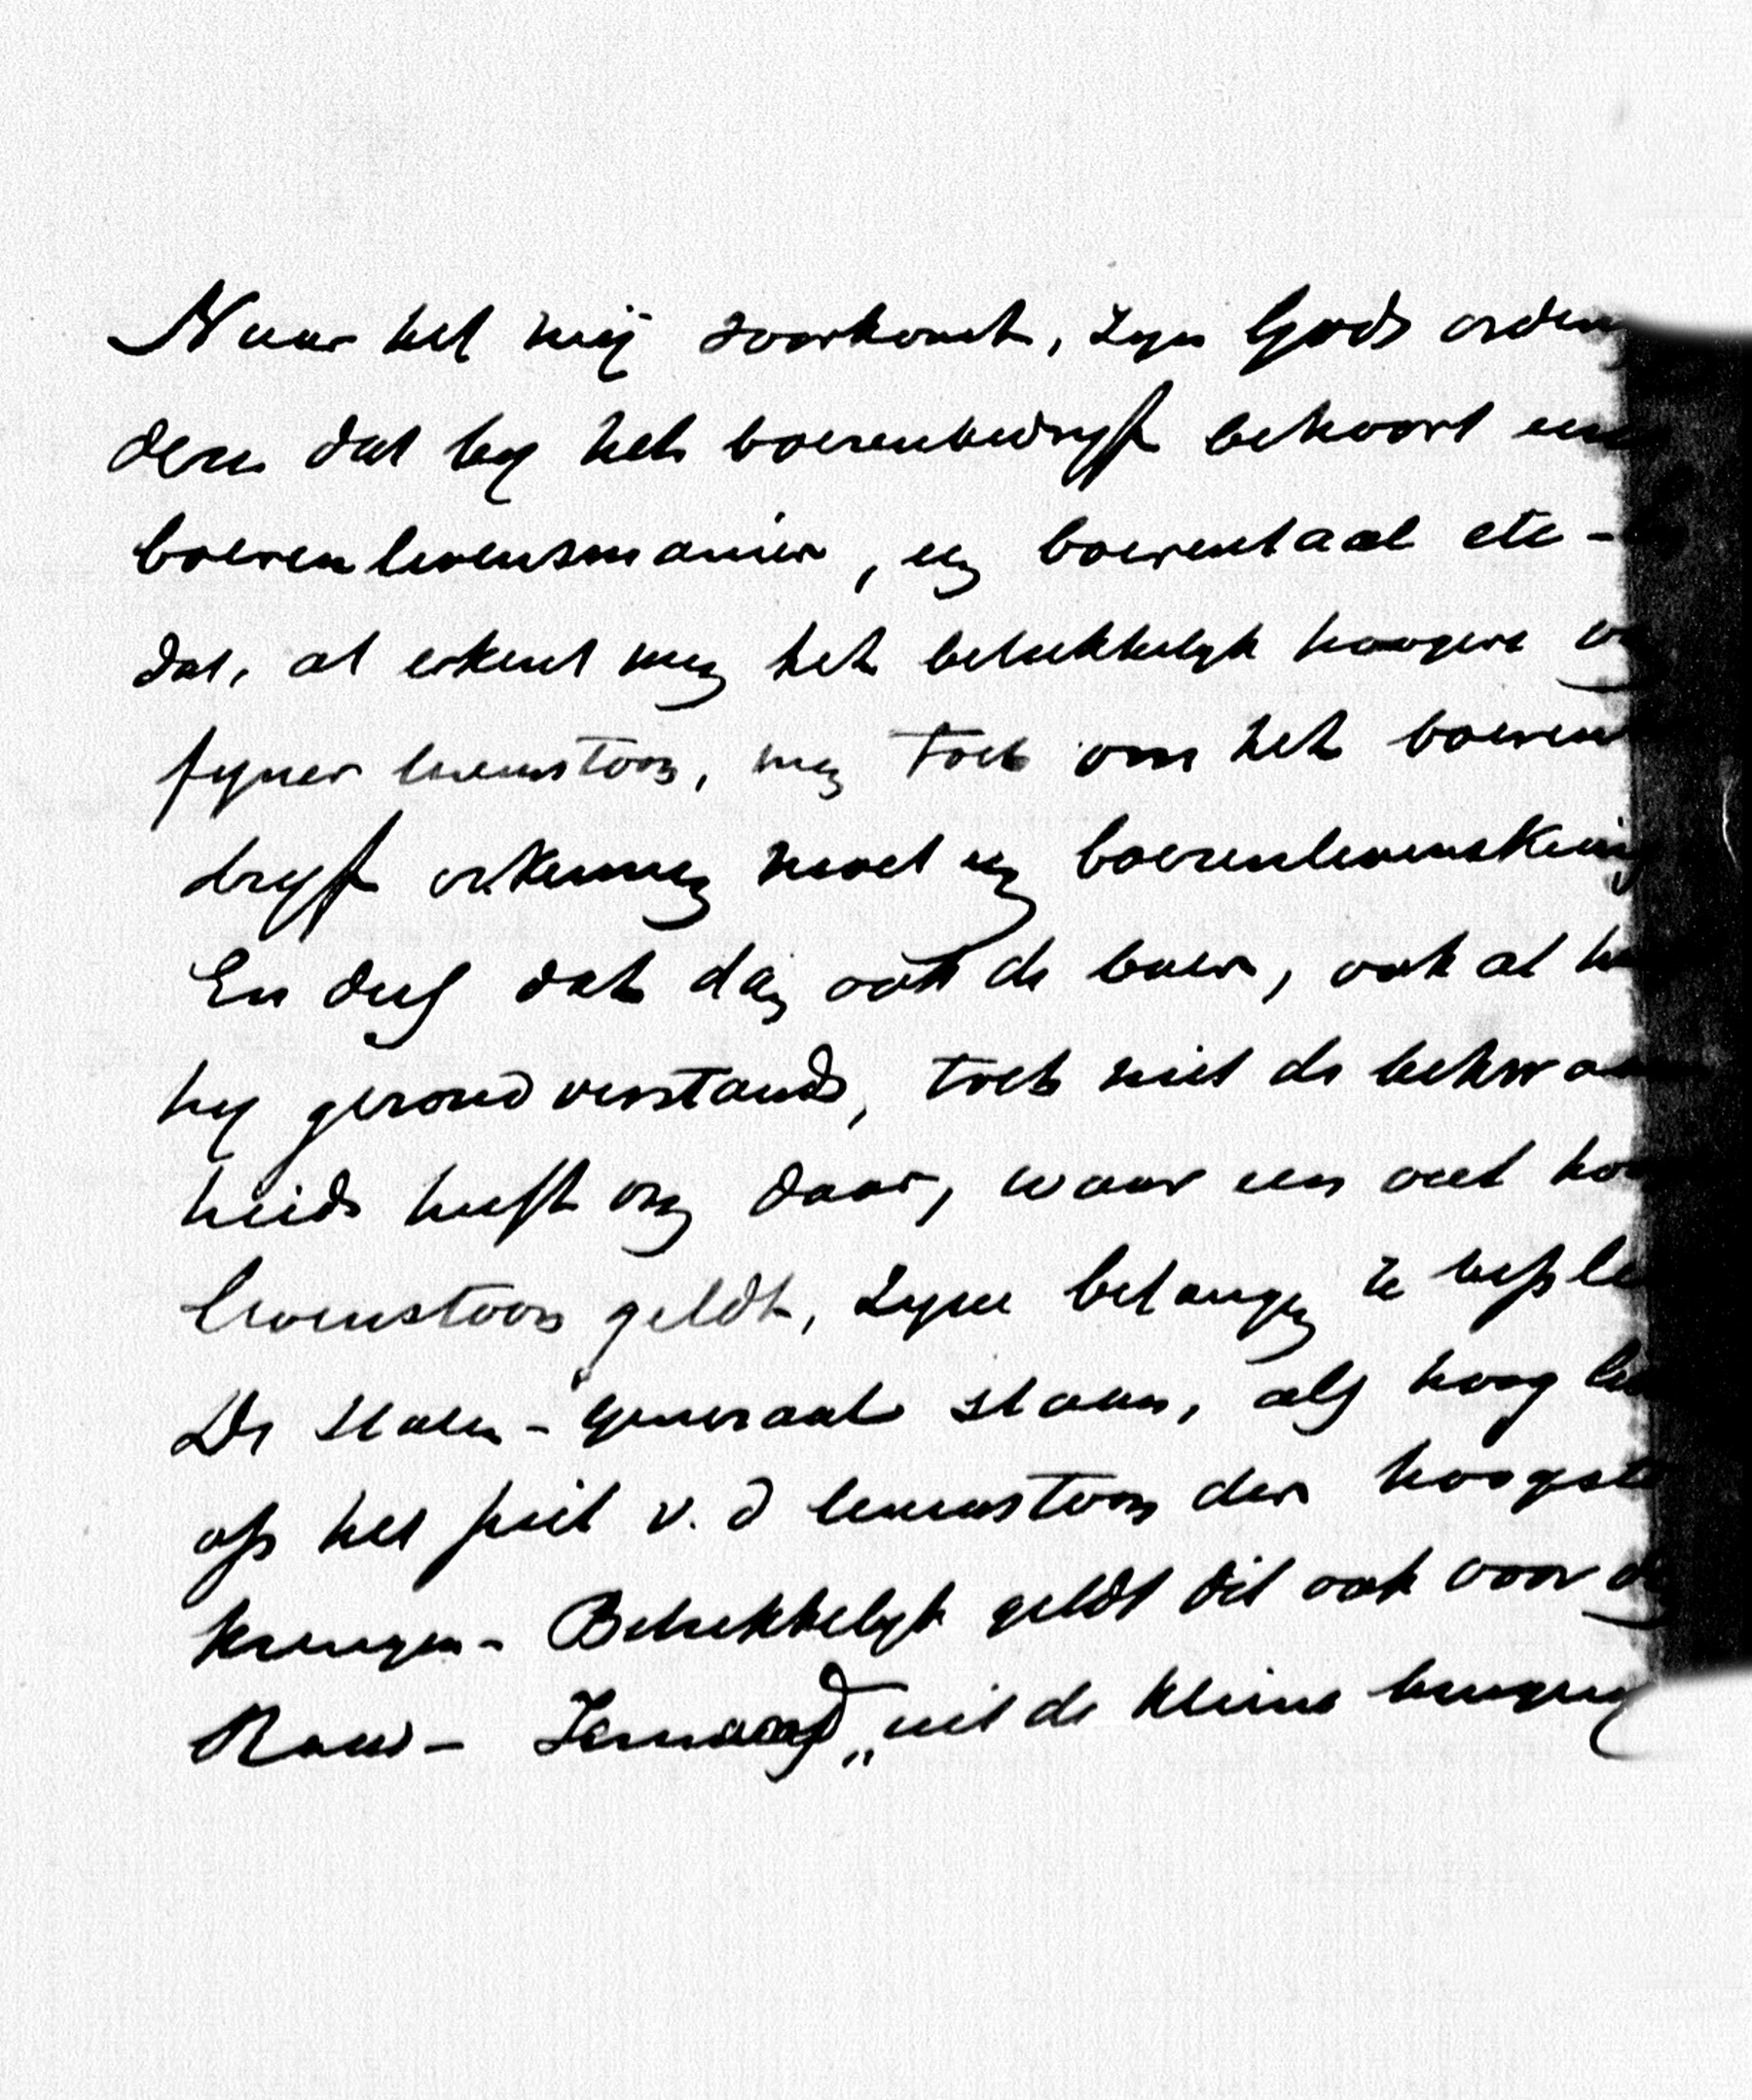 Naar het mij voorkomt, zyn Gods orden
dern dat by het boerenbedryf behoort eene
boerenlevensmanier, een boerentaal etc -
dat, al erkent men het betrekkelyk hoogere
fyner levenstoon, men toch om het boeren
dryf erkenning moet een boerenlevenskring
En deels dat dan ook de boer, ook al
hy gezond verstand, toch niet de bekwaam
heid heeft om daar, waar een veel
levenstoon geldt, zyne belangen te beple
De Staten-generaal staan, als hoog
op het peil v. d levenstoon der hoogste
kringen - Betrekkelyk geldt dit ook voor de
Raad - Iemand „uit de kleine burgery